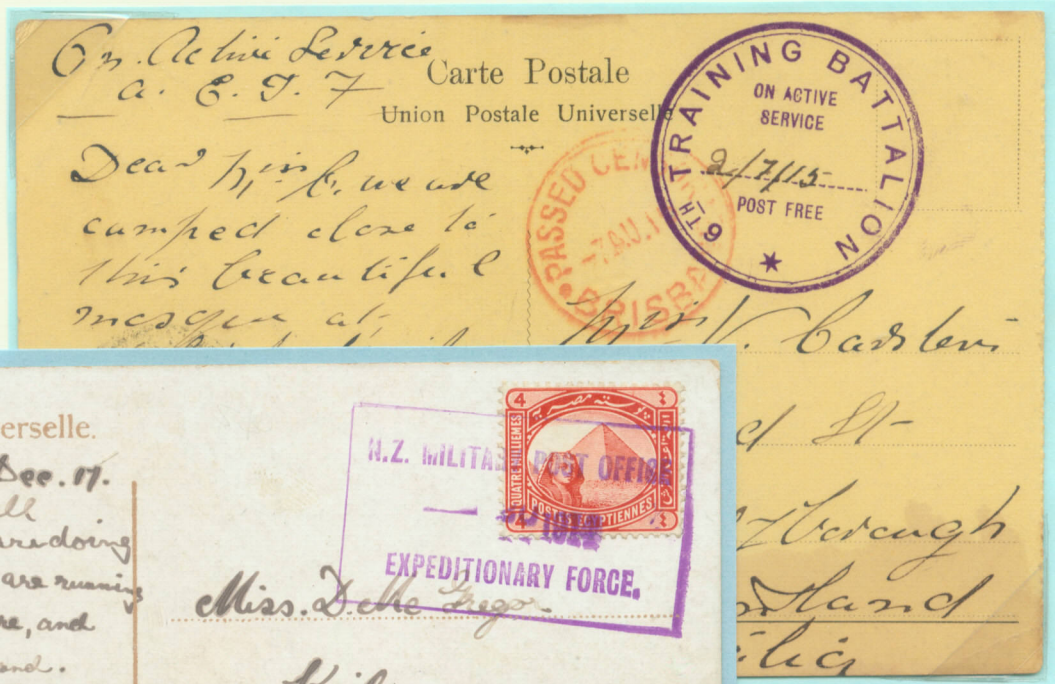 On Active Service
A. E. I. F
Carte Postale
Union Postale Universelle
6TH TRAINING BATTALION
ON ACTIVE
SERVICE
2/7/15
POST FREE
PASSED CEN
7 AU. 1
BRISBA
Dear we are
camped close to
this beautiful
mosque at
Mrs V.
d St
land
erselle.
Dec. 17.
are doing
are running
re, and
and.
N.Z. MILITA POST OFFICE
EXPEDITIONARY FORCE.
4
بوسته مصريه
٤
QUATRE MILLIEMES
POSTES EGYPTIENNES
4
٤
Miss. D. McGregor